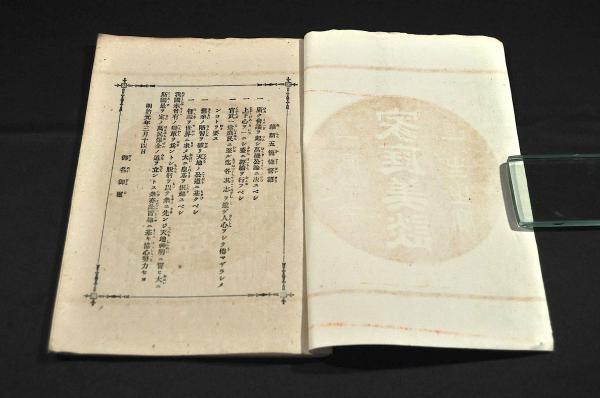 維新五箇條誓語
一 廣ク會議ヲ興シ萬機公論ニ決スベシ
一 上下心ヲ一ニシ盛ニ經綸ヲ行フベシ
一 官武一途庶民ニ至ル迄各其志ヲ遂ゲ人心ヲシテ倦マザラシメ
ンコトヲ要ス
一 舊來ノ陋習ヲ破リ天地ノ公道ニ基クベシ
一 智識ヲ世界ニ求メ大ニ皇基ヲ振起スベシ
我國未曾有ノ變革ヲ爲ントシ朕躬ヲ以テ衆ニ先ンジ天地神明ニ誓ヒ大ニ
斯國是ヲ定メ萬民保全ノ道ヲ立ントス衆亦此旨趣ニ基キ協心努力セヨ
明治元年三月十四日
御名御璽